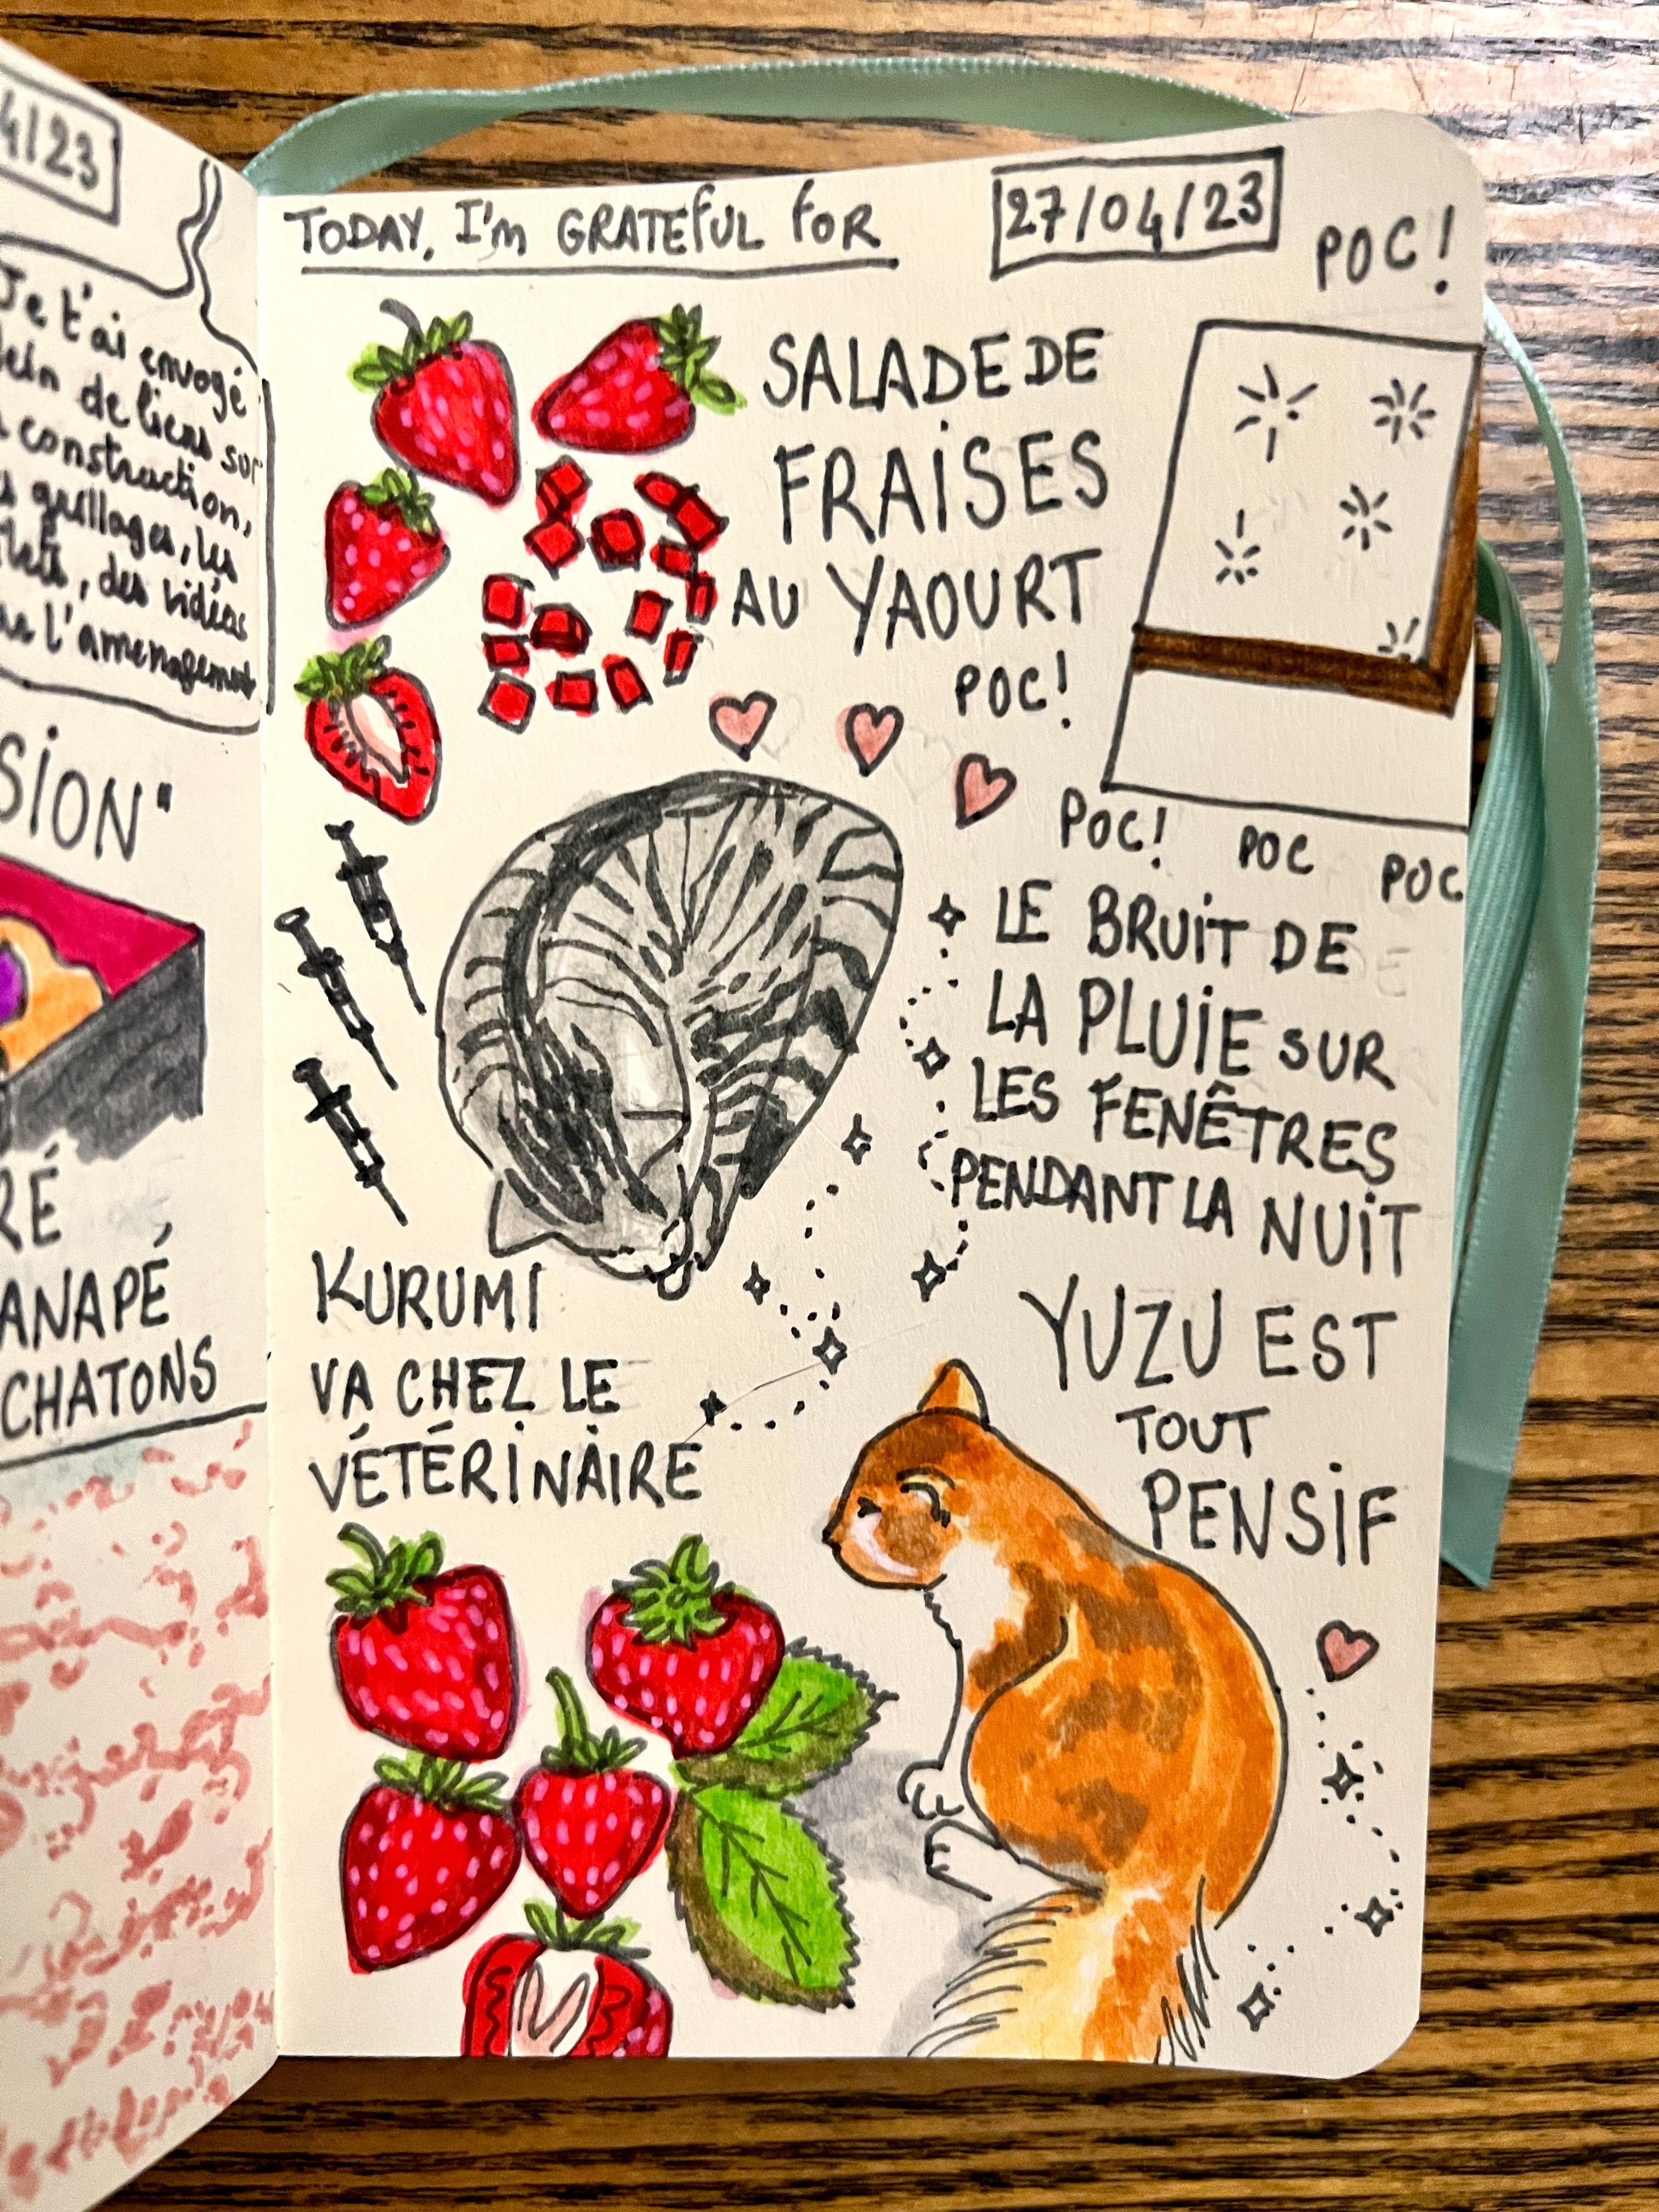 4/23
Je t'ai envoyé
de liens sur
construction,
les
, des vidéos
l'amenagement
SION"
RÉ
ANAPÉ
CHATONS
TODAY, I'm GRATEFUL FOR
27/04/23
POC!
SALADE DE
FRAISES
AU YAOURT
POC!
POC!
POC
POC
LE BRUIT DE
LA PLUIE SUR
LES FENÊTRES
PENDANT LA NUIT
KURUMI
VA CHEZ LE
VÉTÉRINAIRE
YUZU EST
TOUT
PENSIF